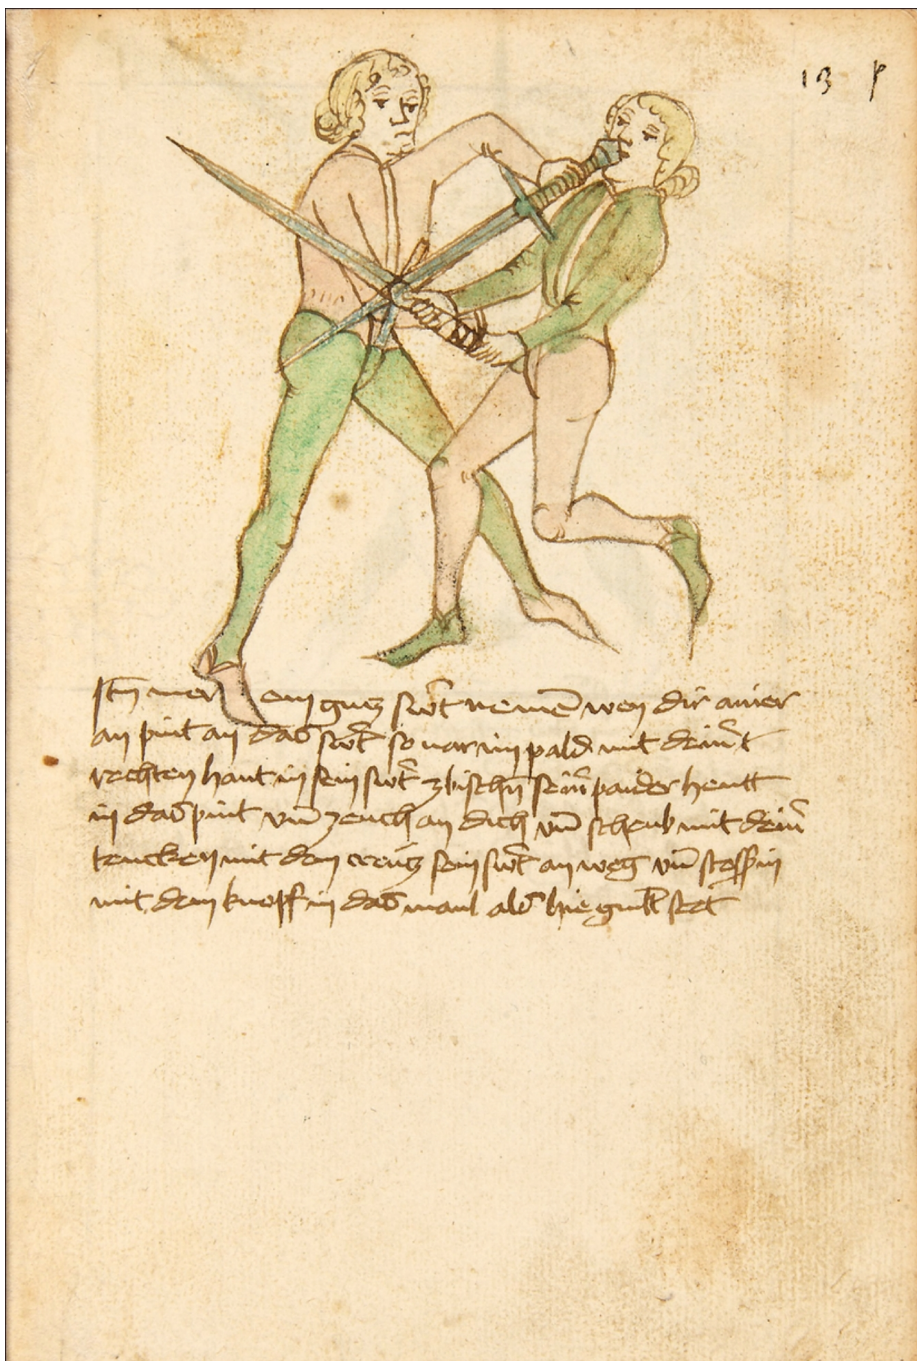 13
Itm̄ mer ein gutz swt̄ nemē wen dir ainer
an pint an das swt̄ so var im pald mit deinr̄
rechten hant in sein swt̄ zbischn̄ sein̄ paider hentt
in das pint vn̄ zeuch an dich vn̄ scheub mit dein̄
trucken mit dem creutz sein swt̄ an weg vn̄ stoss in
mit dem knopff in das maul als hie gmlt̄ stet